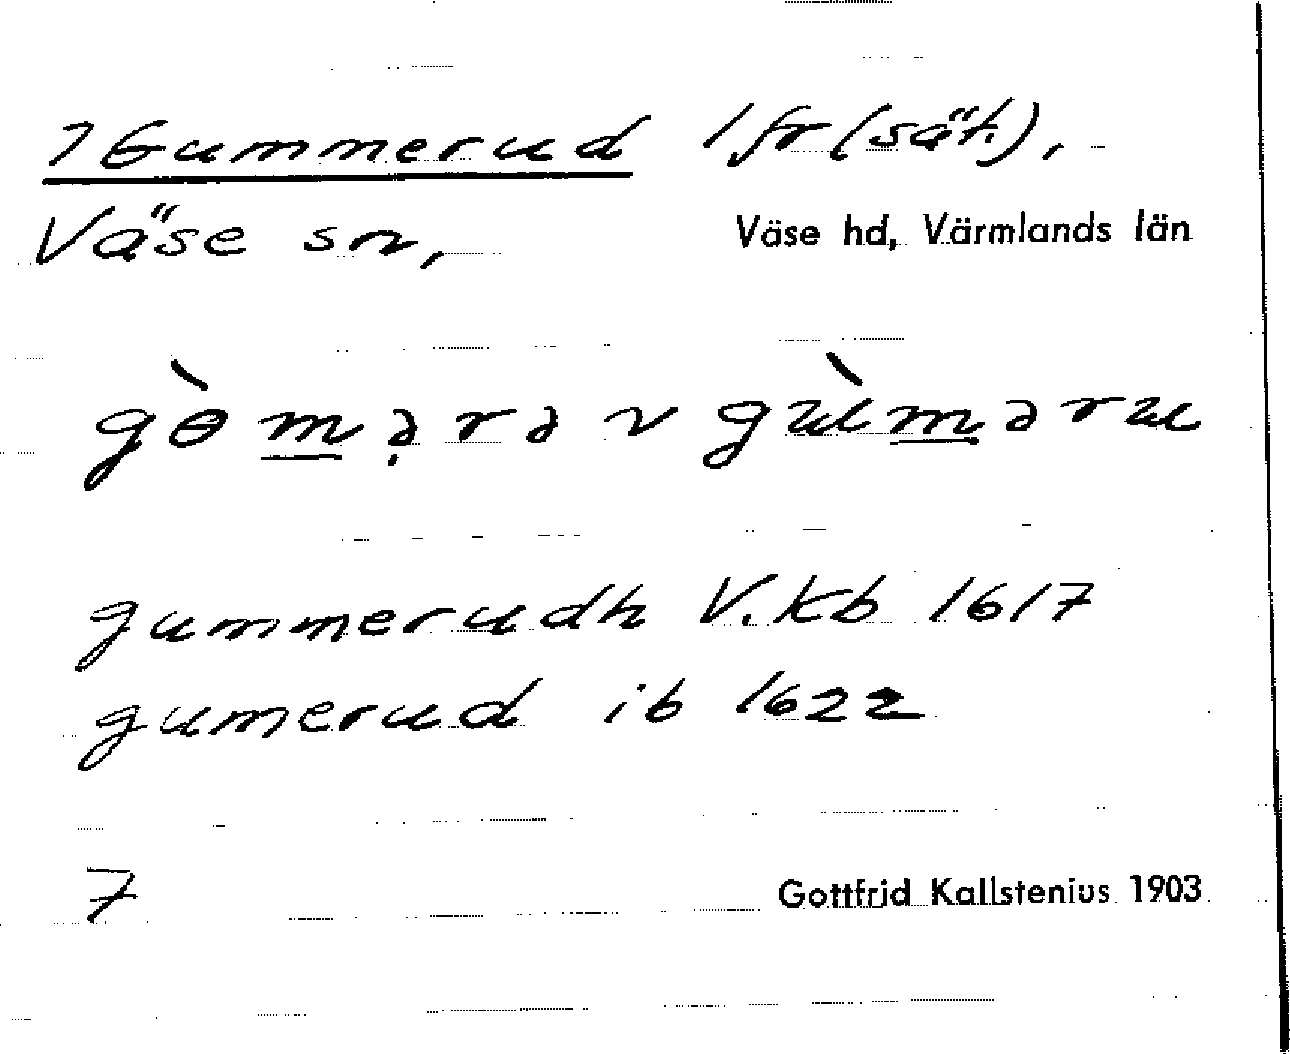 7 Gummerud 1 fr (säh),
Väse sn, Väse hd, Värmlands län
gɵ̀mə̣rə v gùməru
gummerudh V. Kb 1617
gumerud ib 1622
7 Gottfrid Kallstenius 1903